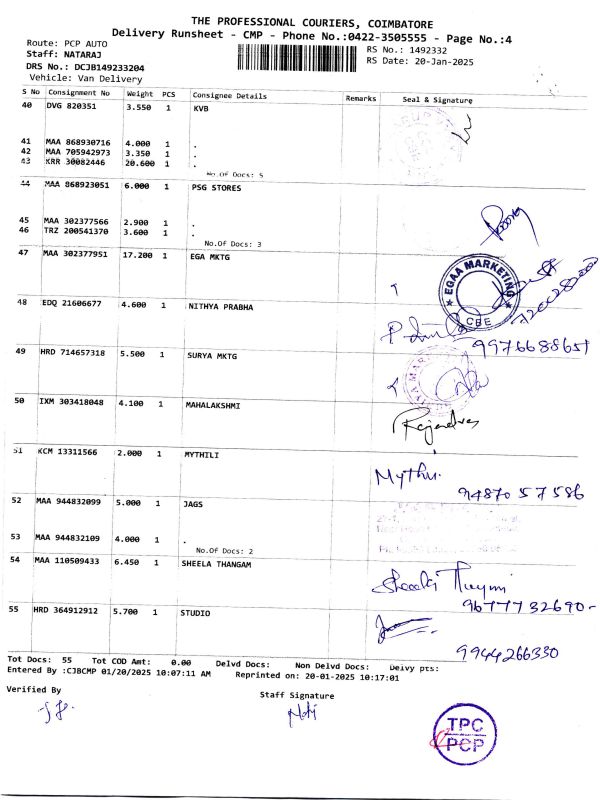 THE PROFESSIONAL COURIERS, COIMBATORE
Delivery Runsheet - CMP - Phone No.:0422-3505555 - Page No.:4
Route: PCP AUTO
RS No.: 1492332
Staff: NATARAJ
RS Date: 20-Jan-2025
DRS No.: DCJB149233204
Vehicle: Van Delivery
S No Consignment No Weight PCS Consignee Details Remarks Seal & Signature
40 DVG 820351 3.550 1 KVB
41 MAA 868930716 4.000 1 .
42 MAA 705942973 3.350 1 .
43 KRR 30082446 20.600 1 .
No.Of Docs: 5
44 MAA 868923051 6.000 1 PSG STORES
45 MAA 302377566 2.900 1 .
46 TRZ 200541370 3.600 1 .
No.Of Docs: 3
47 MAA 302377951 17.200 1 EGA MKTG
EGAA MARKETING
CBE
48 EDQ 21606677 4.600 1 NITHYA PRABHA
9976688651
49 HRD 714657318 5.500 1 SURYA MKTG
50 IXM 303418048 4.100 1 MAHALAKSHMI
51 KCM 13311566 2.000 1 MYTHILI
Mythu.
9487057586
52 MAA 944832099 5.000 1 JAGS
53 MAA 944832109 4.000 1 .
No.Of Docs: 2
54 MAA 110509433 6.450 1 SHEELA THANGAM
9677732690-
55 HRD 364912912 5.700 1 STUDIO
9944266330
Tot Docs: 55 Tot COD Amt: 0.00 Delvd Docs: Non Delvd Docs: Delvy pts:
Entered By :CJBCMP 01/20/2025 10:07:11 AM Reprinted on: 20-01-2025 10:17:01
Verified By
Staff Signature
TPC
PCP